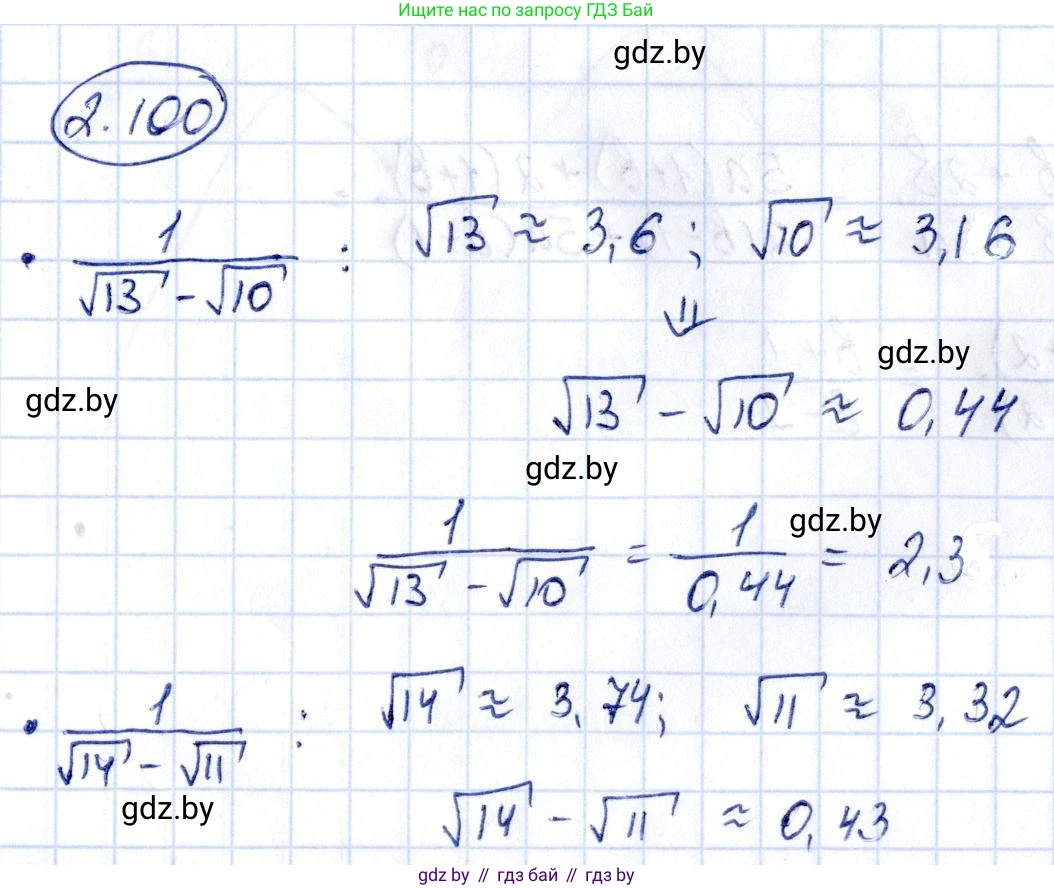 Ищите нас по запросу ГДЗ Бай
gdz.by
2.100
• 1/(√13 - √10) : √13 ≈ 3,6; √10 ≈ 3,16
⇓
gdz.by
gdz.by
√13 - √10 ≈ 0,44
gdz.by
gdz.by
1/(√13 - √10) = 1/0,44 = 2,3
• 1/(√14 - √11) : √14 ≈ 3,74; √11 ≈ 3,32
gdz.by
√14 - √11 ≈ 0,43
gdz.by // гдз бай // gdz.by